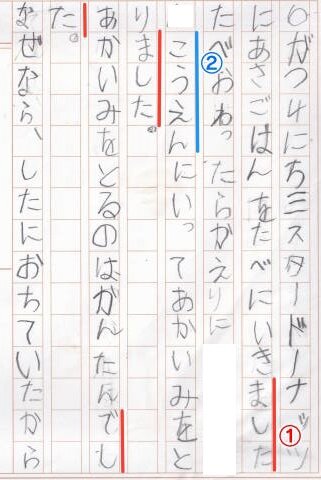 ○がつ4にちミスタードーナッツ
にあさごはんをたべにいきました
①
たべおわったらかえりに
②
こうえんにいってあかいみをと
りました。
あかいみをとるのはかんたんでし
た。
なぜなら、したにおちていたから